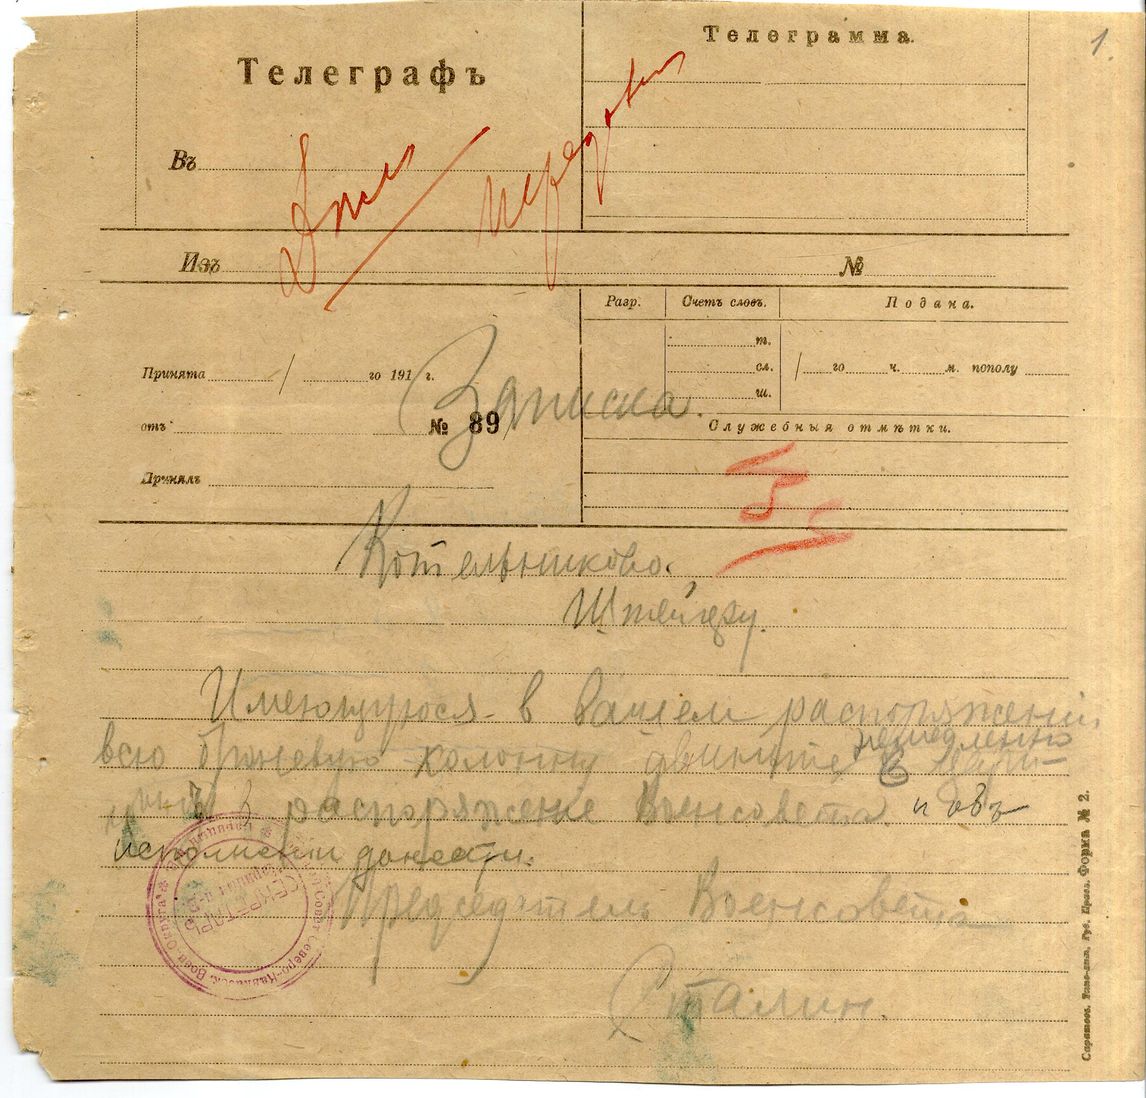 1.
Телеграфъ
Телеграмма.
Въ
передать
Изъ
№
Разр. Счетъ словъ. Подана.
т.
Принята / го 191 г.
сл. / го ч. м. пополу
ш.
Записка.
отъ № 89
Служебныя отмѣтки.
Принялъ
Котельниково.
Штейгеру.
Имеющуюся в вашем распоряжении
немедленно
всю броневую колонну двиньте в Цари-
цын в распоряжение Военсовета и об
исполнении донести.
СЕКРЕТАРЬ
Председатель Военсовета
Сталин.
Саратовъ. Типо-лит. Губ. Правл. Форма № 2.